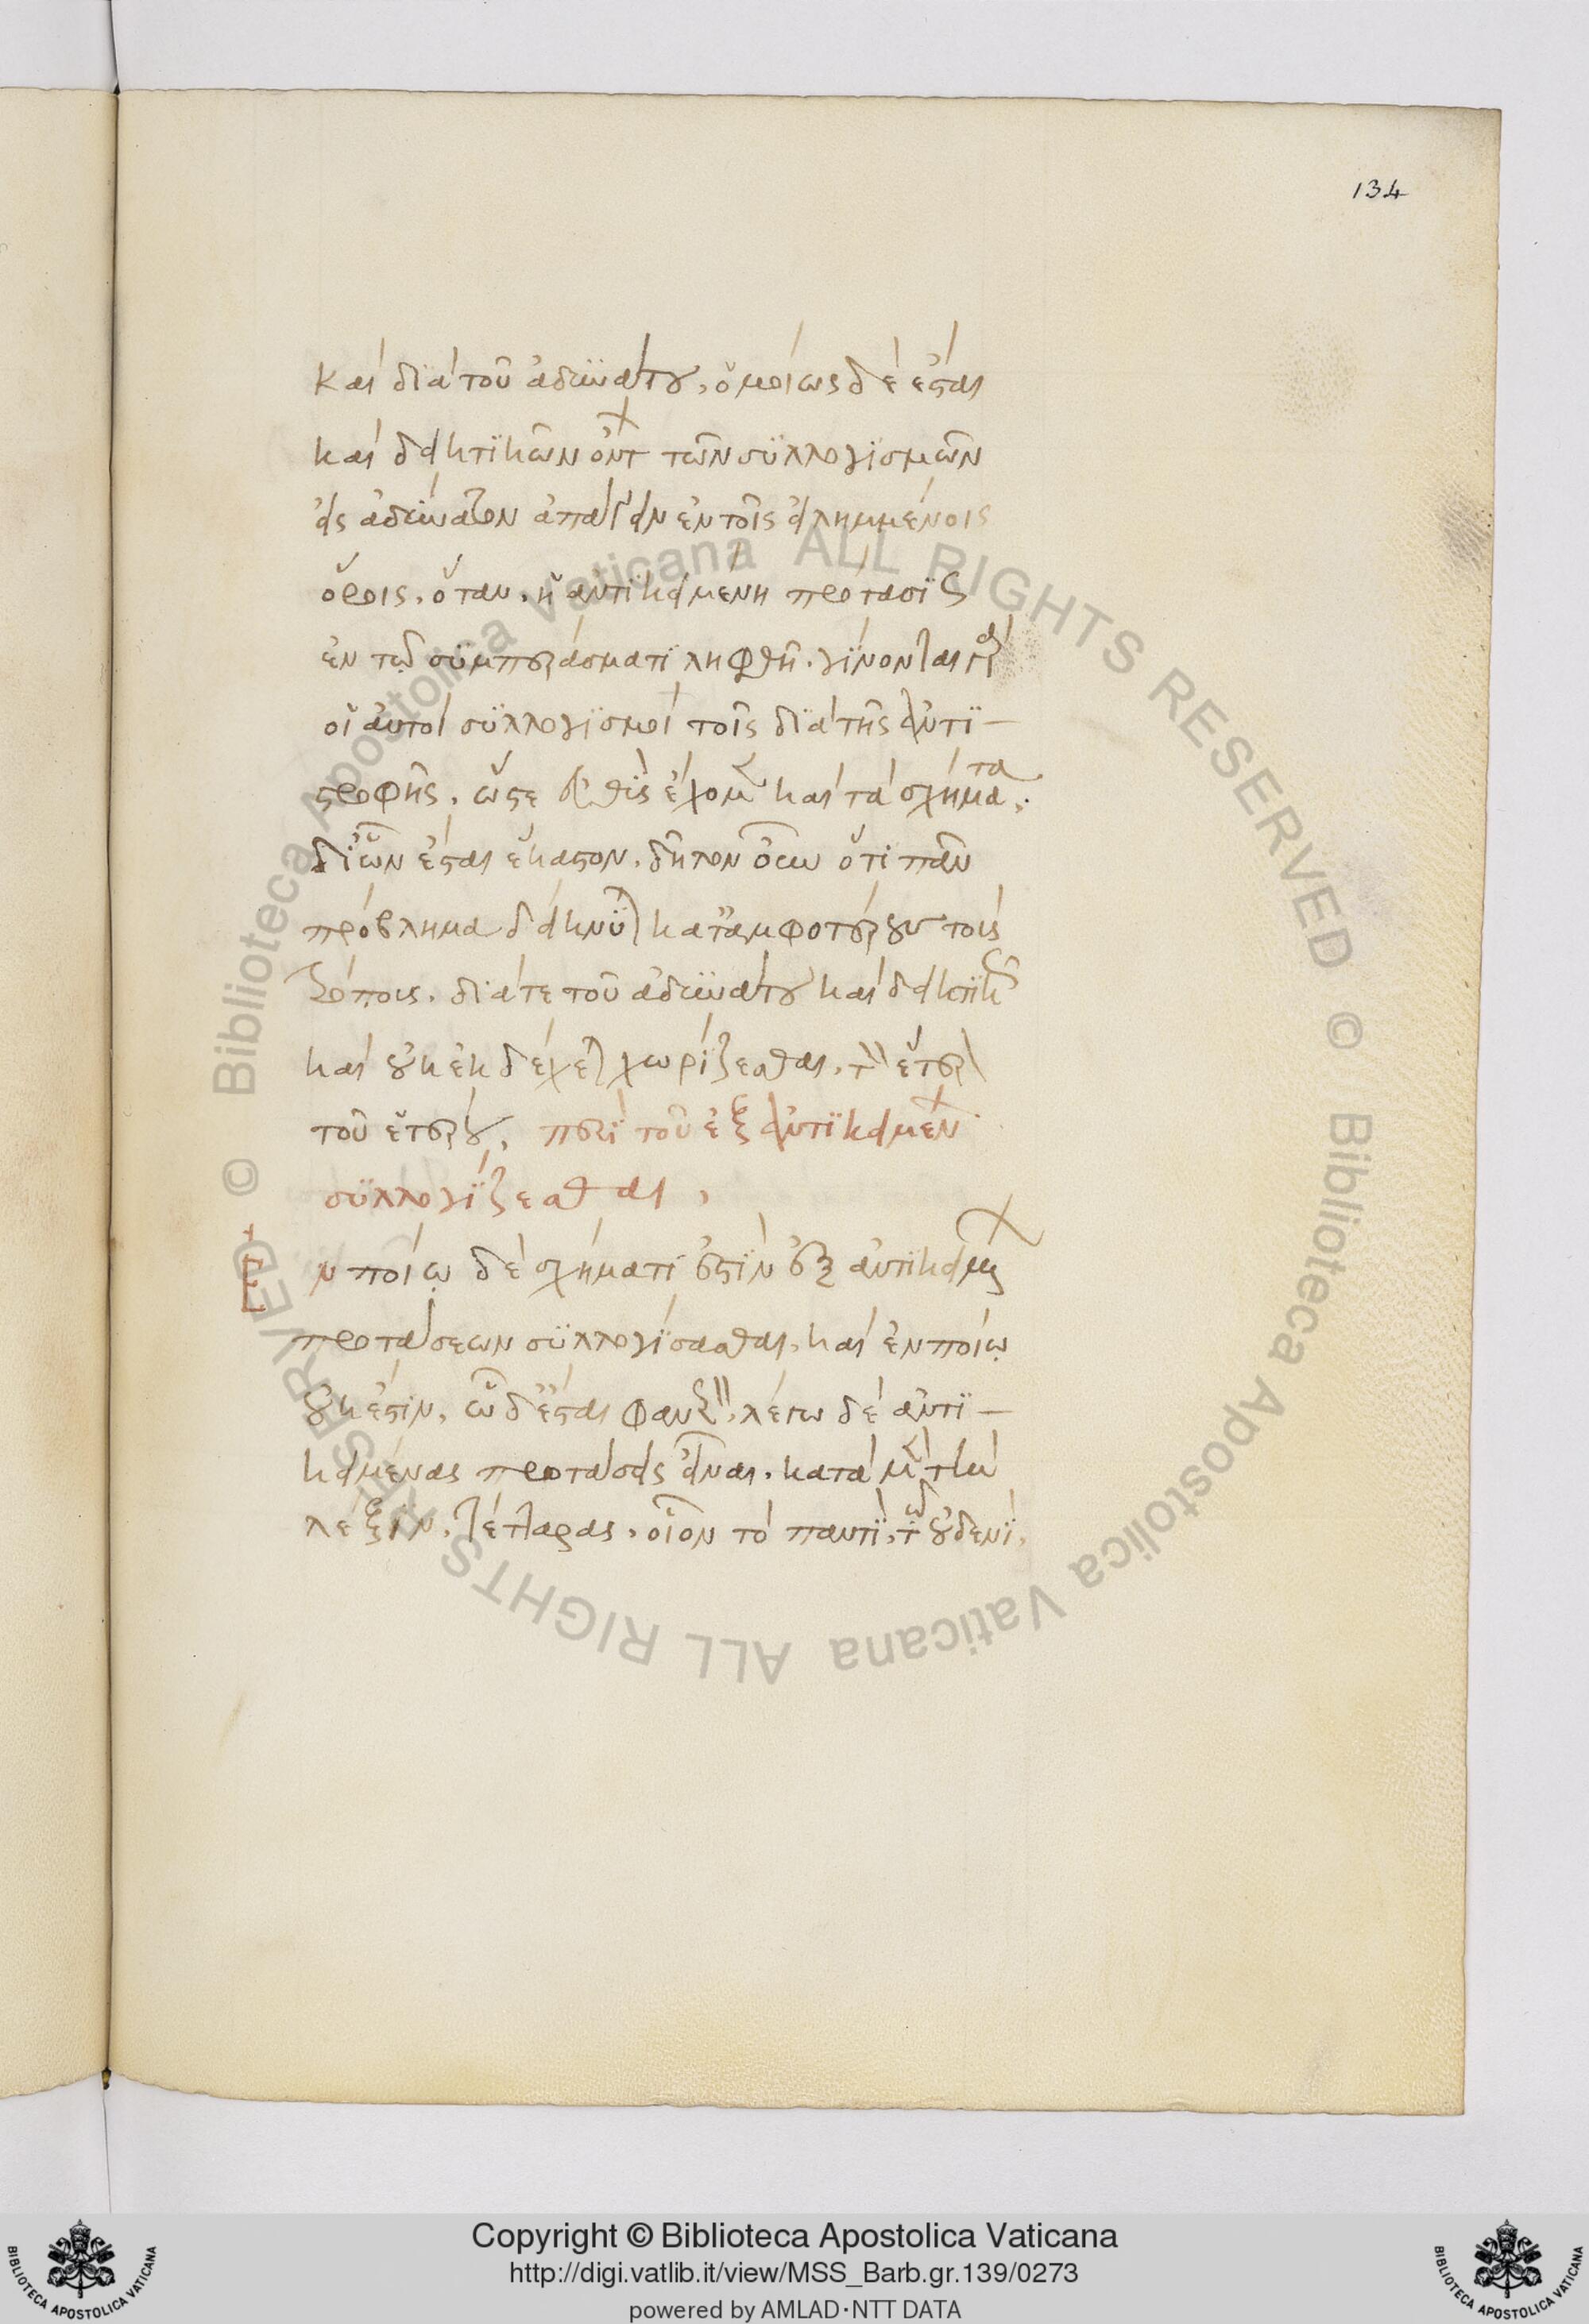 134
καὶ διὰ τοῦ ἀδυνάτου, ὁμοίως δὲ ἔσται
καὶ δεικτικῶν ὄντ τῶν συλλογισμῶν
εἰς ἀδύνατον ἀπάγειν ἐν τοῖς εἰλημμένοις
ὅροις. ὅταν. ἡ ἀντικειμένη πρότασις
ἐν τῷ συμπεράσματι ληφθῆ. γίνονται γὰρ
οἱ αὐτοὶ συλλογισμοὶ τοῖς διὰ τῆς ἀντι–
στροφῆς. ὥστε εὐθὺς ἔχομεν καὶ τὰ σχήματα.
δι' ὧν ἔσται ἕκαστον. δῆλον οὖν ὅτι πᾶν
πρόβλημα δείκνυται κατ' ἀμφοτέρους τοὺς
τρόπους. διά τε τοῦ ἀδυνάτου καὶ δεικτικῶς
καὶ οὐκ ἐκδέχεται χωρίζεσθαι. τὸν ἕτερον
τοῦ ἑτέρου, περὶ τοῦ ἐξ ἀντικειμένων
συλλογίζεσθαι,
Ἐν ποίῳ δὲ σχήματι ἔστιν ἐξ ἀντικειμένων
προτάσεων συλλογίσασθαι, καὶ ἐν ποίῳ
οὐκ ἔστιν, ὧδ' ἔσται φανερόν. λέγω δὲ ἀντι–
κειμένας προτάσεις εἶναι. κατὰ μὲν τὴν
λέξιν, τέτταρας. οἷον τὸ παντὶ, τῶ οὐδενί,
Copyright © Biblioteca Apostolica Vaticana
http://digi.vatlib.it/view/MSS_Barb.gr.139/0273
powered by AMLAD·NTT DATA
BIBLIOTECA APOSTOLICA VATICANA
BIBLIOTECA APOSTOLICA VATICANA
© Biblioteca Apostolica Vaticana ALL RIGHTS RESERVED © Biblioteca Apostolica Vaticana ALL RIGHTS RESERVED